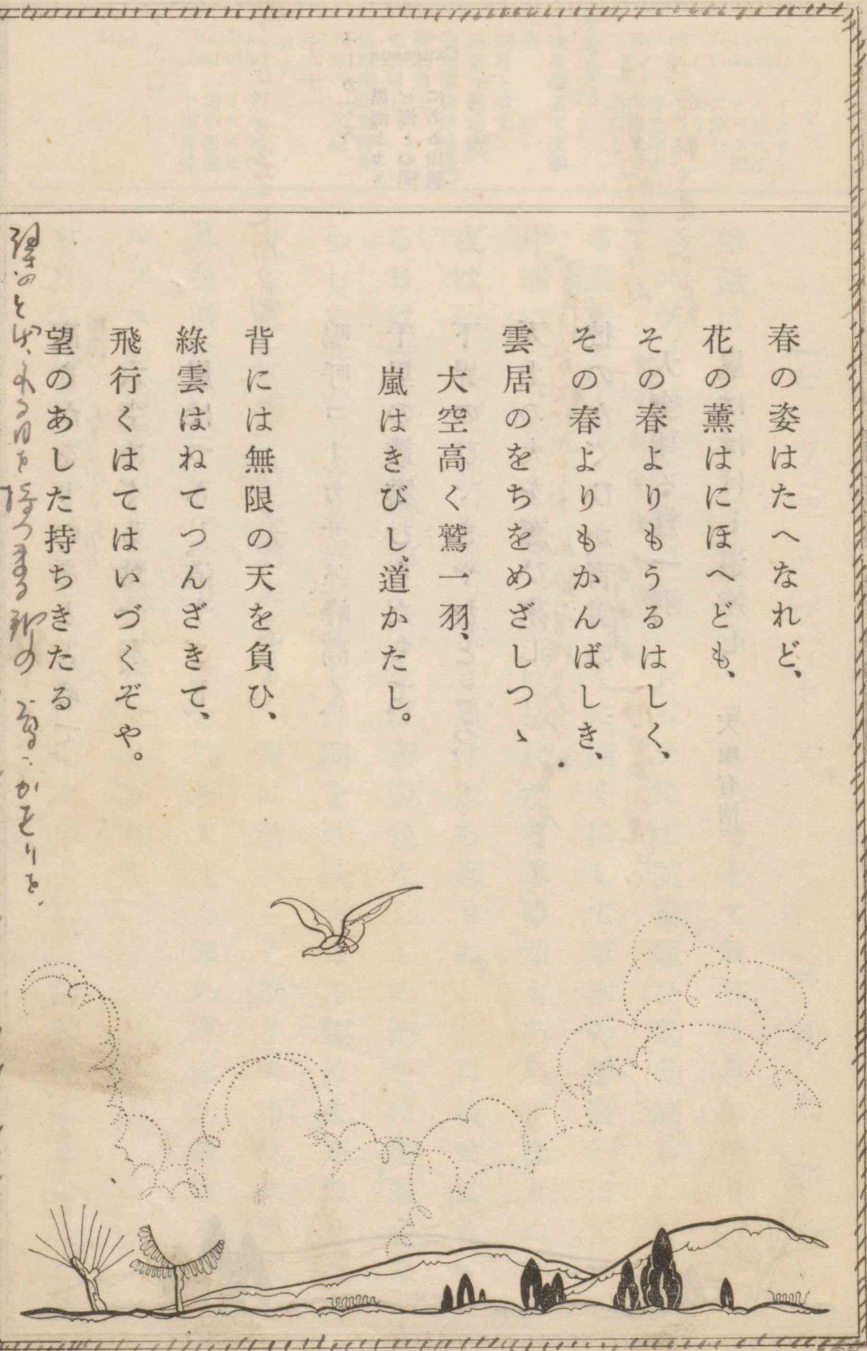 春の姿はたへなれど、
花の薫はにほへども、
その春よりもうるはしく、
その春よりもかんばしき、
雲居のをちをめざしつゝ
大空高く鷲一羽、
嵐はきびし、道かたし。
背には無限の天を負ひ、
綠雲はねてつんざきて、
飛行くはてはいづくぞや。
望のあした持ちきたる